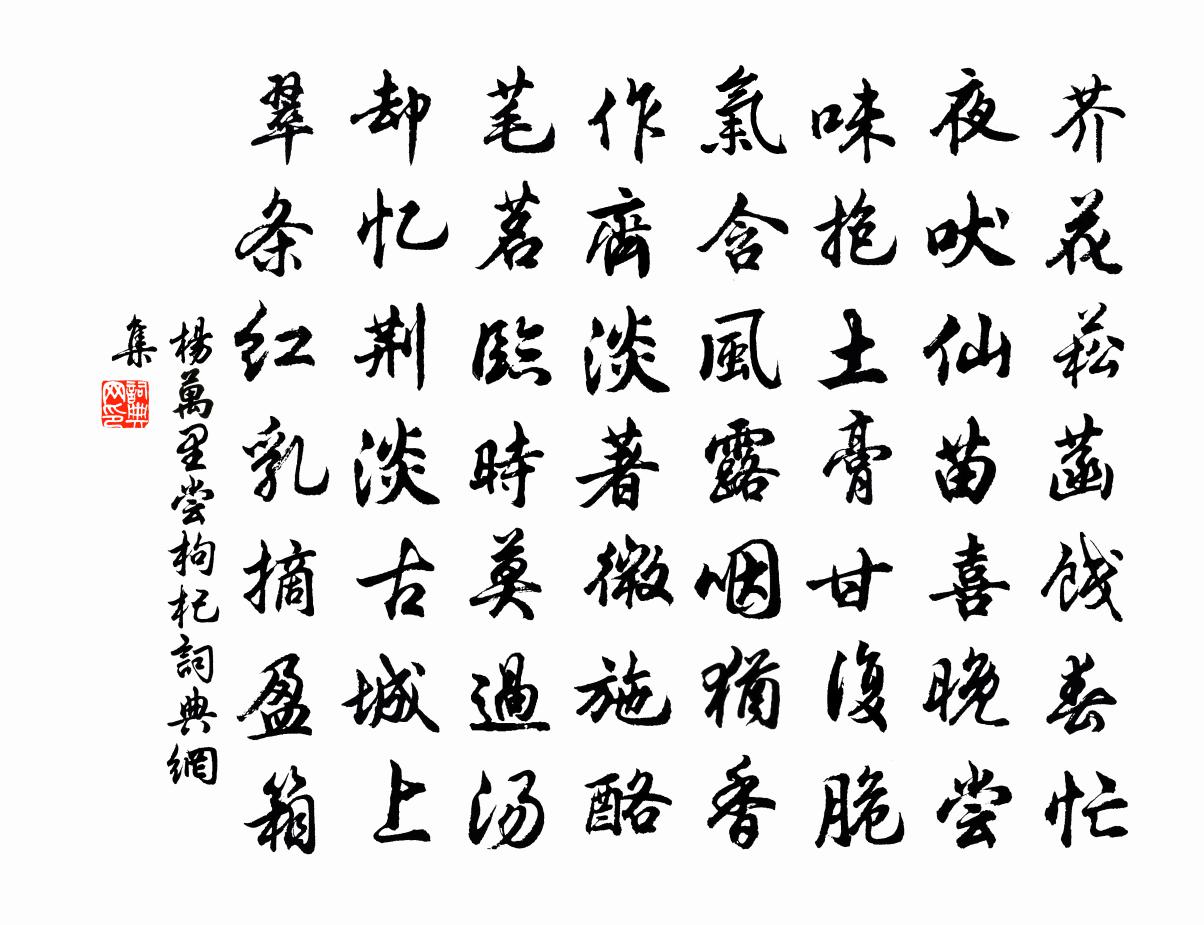 芥花菘菡饯春忙
夜吠仙苗喜晚尝
味抱土膏甘復脆
氣含風露咽猶香
作齊淡著微施酪
芼茗臨時莫過汤
却忆荆淡古城上
翠条红乳摘盈箱
楊萬里尝枸杞詞典網
集
詞典网印